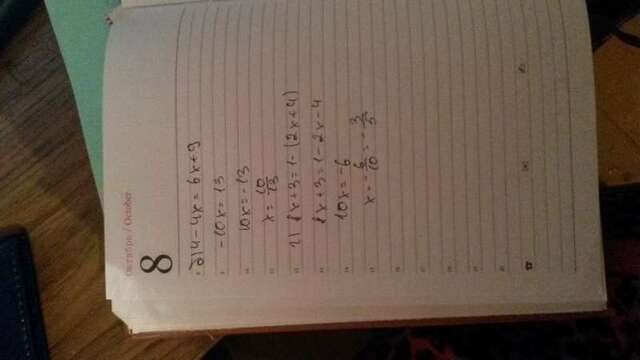 Октябрь / October
8
в) 4 - 4x = 6x + 9
-10x = 13
10x = -13
x = 10/13
г) 8x + 3 = 1 - (2x + 4)
8x + 3 = 1 - 2x - 4
10x = -6
x = - 6/10 = - 3/5